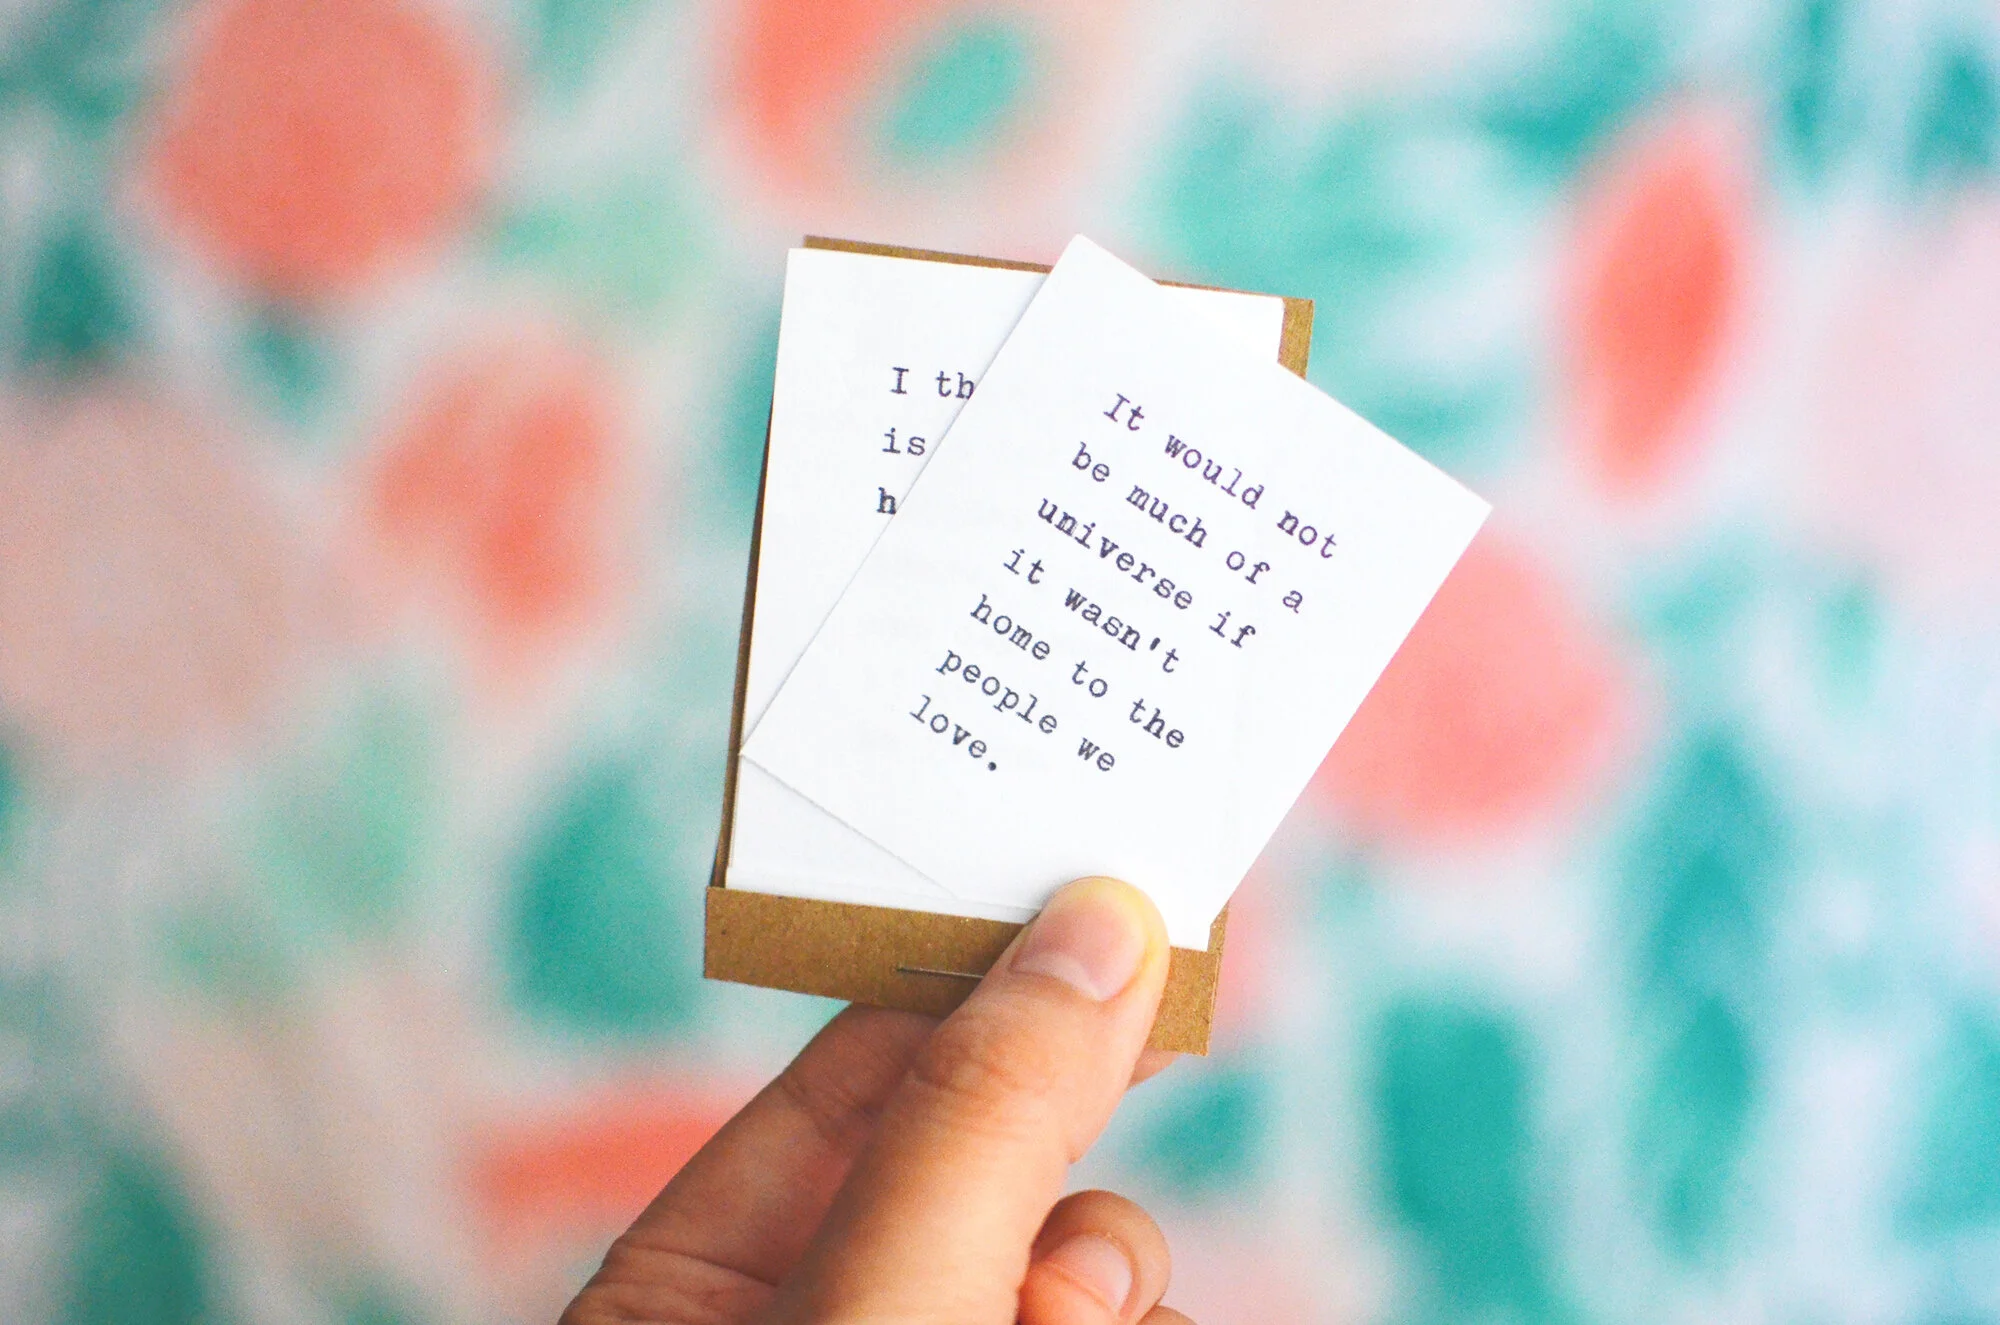 I th
is
h
It would not
be much of a
universe if
it wasn't
home to the
people we
love.